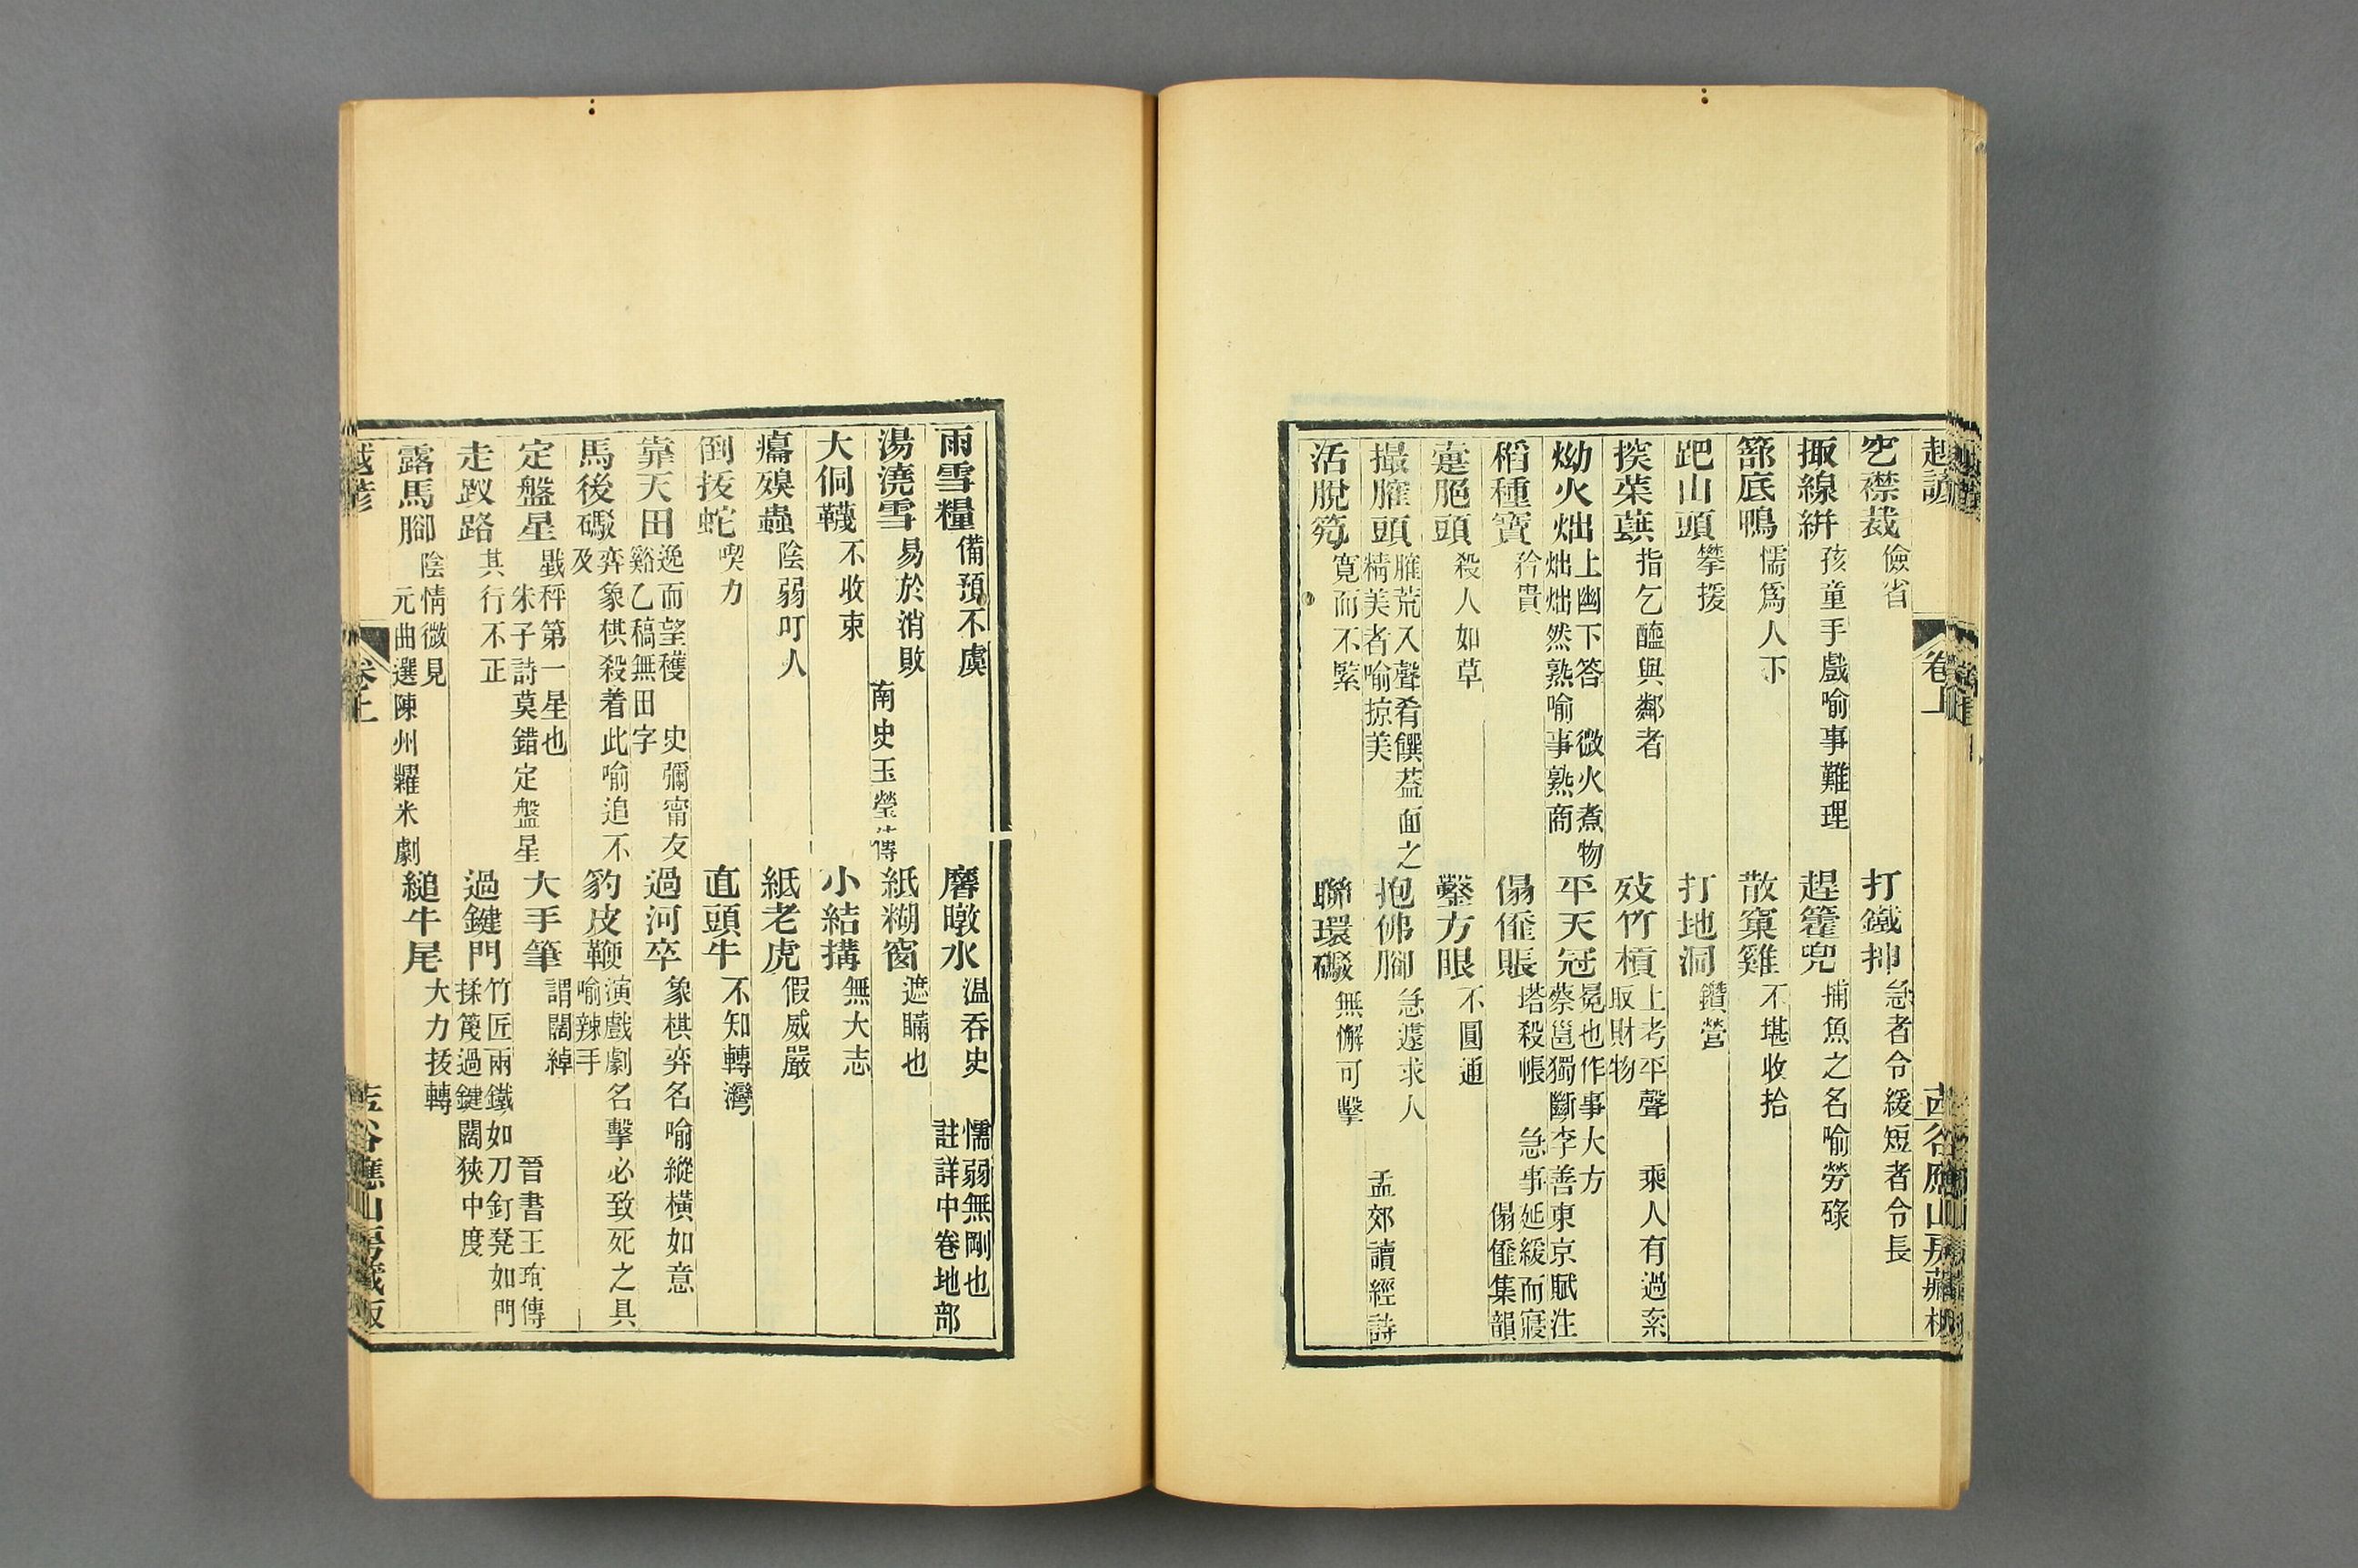 越諺 卷上
空襟裁 儉省 打鐵抻 急者令緩短者令長
掫線絣 孩童手戲喻事難理 趕籗兜 捕魚之名喻勞碌
篰底鴨 懦爲人下 散窠雞 不堪收拾
跁山頭 攀援 打地洞 鑽營
指乞醯與鄰者 敁竹槓 上考平聲 乘人有過索取財物
㶭火炪 上幽下答 微火煮物炪炪然熟喻事熟商 平天冠 冕也作事大方 蔡邕獨斷李善東京賦注
稻種寶 矜貴 傝𠍁賬 塔殺帳 急事延緩而寢 傝𠍁集韻
殺人如草 鑿方眼 不圓通
撮臛頭 臛荒入聲肴饌葢面之精美者喻掠美 抱佛腳 急遽求人 孟郊讀經詩
活脫 寛而不緊 聯環礮 無懈可擊
雨雪糧 備預不虞 磨暾水 温吞史 懦弱無剛也註詳中卷地部
湯澆雪 易於消敗 南史王瑩傳 紙糊窗 遮瞞也
大侗韈 不收束 小結搆 無大志
陰弱叮人 紙老虎 假威嚴
倒拔蛇 喫力 直頭牛 不知轉灣
靠天田 逸而望穫 史彌甯友谿乙稿無田字 過河卒 象棋弈名喻縱橫如意
馬後礮 弈象棋殺着此喻追不及 豹皮鞭 演戲劇名擊必致死之具喻辣手
定盤星 戥秤第一星也 朱子詩莫錯定盤星 大手筆 謂闊綽 晉書王珣傳
走踭路 其行不正 過鍵門 竹匠兩鐵如刀釘凳如門揉篾過鍵闊狹中度
露馬腳 陰情微見 元曲選陳州糶米劇 縋牛尾 大力拔轉
越諺 卷上